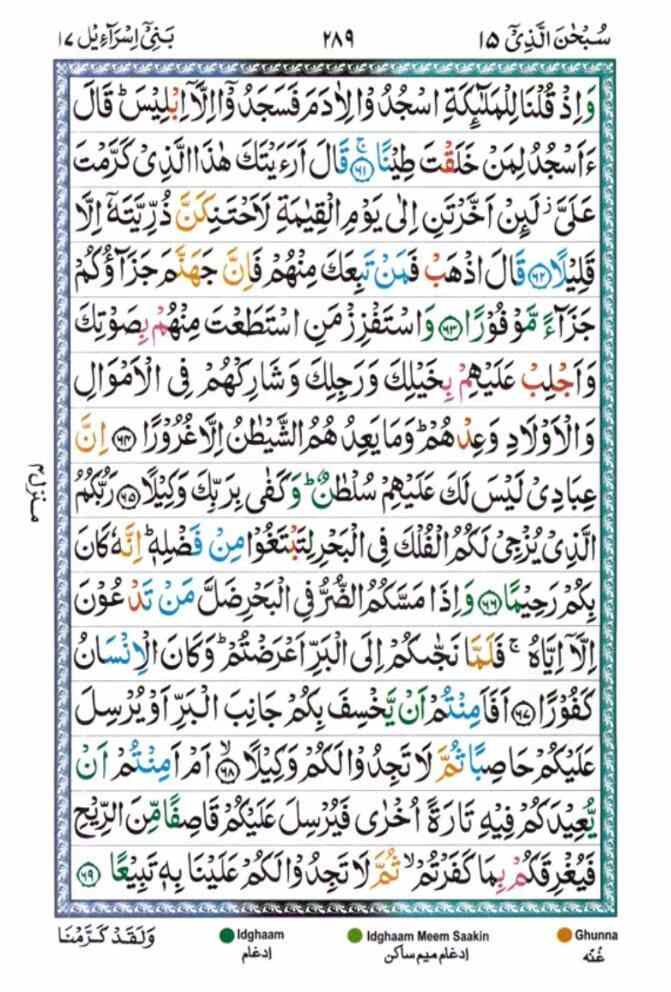 سُبْحٰنَ الَّذِیْۤ ۱۵
۲۸۹
بَنِیْۤ اِسْرَآءِیْل ۱۷
وَاِذْ قُلْنَا لِلْمَلٰٓئِكَةِ اسْجُدُوْا لِاٰدَمَ فَسَجَدُوْۤا اِلَّاۤ اِبْلِیْسَ ؕ قَالَ
ءَاَسْجُدُ لِمَنْ خَلَقْتَ طِیْنًا ۚ﴿۶۱﴾ قَالَ اَرَءَیْتَكَ هٰذَا الَّذِیْ كَرَّمْتَ
عَلَیَّ ؗ لَىِٕنْ اَخَّرْتَنِ اِلٰی یَوْمِ الْقِیٰمَةِ لَاَحْتَنِكَنَّ ذُرِّیَّتَهٗۤ اِلَّا
قَلِیْلًا ﴿۶۲﴾ قَالَ اذْهَبْ فَمَنْ تَبِعَكَ مِنْهُمْ فَاِنَّ جَهَنَّمَ جَزَآؤُكُمْ
جَزَآءً مَّوْفُوْرًا ﴿۶۳﴾ وَاسْتَفْزِزْ مَنِ اسْتَطَعْتَ مِنْهُمْ بِصَوْتِكَ
وَاَجْلِبْ عَلَیْهِمْ بِخَیْلِكَ وَرَجِلِكَ وَشَارِكْهُمْ فِی الْاَمْوَالِ
وَالْاَوْلَادِ وَعِدْهُمْ ؕ وَمَا یَعِدُهُمُ الشَّیْطٰنُ اِلَّا غُرُوْرًا ﴿۶۴﴾ اِنَّ
عِبَادِیْ لَیْسَ لَكَ عَلَیْهِمْ سُلْطٰنٌ ؕ وَكَفٰی بِرَبِّكَ وَكِیْلًا ﴿۶۵﴾ رَبُّكُمُ
الَّذِیْ یُزْجِیْ لَكُمُ الْفُلْكَ فِی الْبَحْرِ لِتَبْتَغُوْا مِنْ فَضْلِهٖ ؕ اِنَّهٗ كَانَ
بِكُمْ رَحِیْمًا ﴿۶۶﴾ وَاِذَا مَسَّكُمُ الضُّرُّ فِی الْبَحْرِ ضَلَّ مَنْ تَدْعُوْنَ
اِلَّاۤ اِیَّاهُ ۚ فَلَمَّا نَجّٰىكُمْ اِلَی الْبَرِّ اَعْرَضْتُمْ ؕ وَكَانَ الْاِنْسَانُ
كَفُوْرًا ﴿۶۷﴾ اَفَاَمِنْتُمْ اَنْ یَّخْسِفَ بِكُمْ جَانِبَ الْبَرِّ اَوْ یُرْسِلَ
عَلَیْكُمْ حَاصِبًا ثُمَّ لَا تَجِدُوْا لَكُمْ وَكِیْلًا ۙ﴿۶۸﴾ اَمْ اَمِنْتُمْ اَنْ
یُّعِیْدَكُمْ فِیْهِ تَارَةً اُخْرٰی فَیُرْسِلَ عَلَیْكُمْ قَاصِفًا مِّنَ الرِّیْحِ
فَیُغْرِقَكُمْ بِمَا كَفَرْتُمْ ۙ ثُمَّ لَا تَجِدُوْا لَكُمْ عَلَیْنَا بِهٖ تَبِیْعًا ﴿۶۹﴾
منزل ۴
وَلَقَدْ كَرَّمْنَا
Idghaam
ادغام
Idghaam Meem Saakin
ادغام میم ساکن
Ghunna
غُنّه